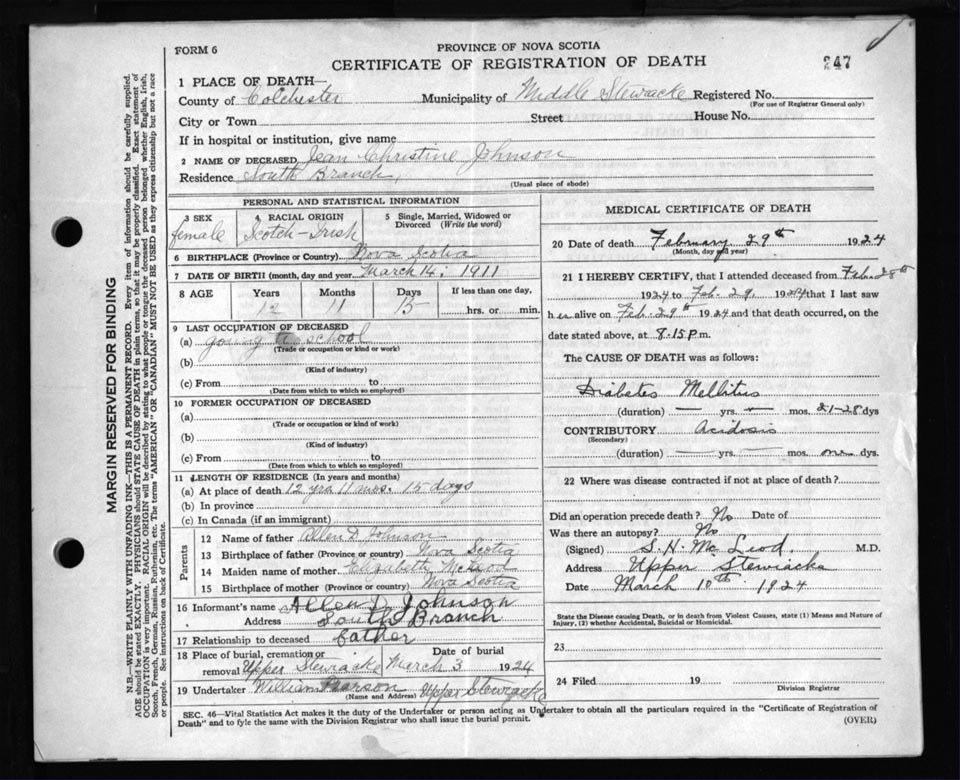 FORM 6
PROVINCE OF NOVA SCOTIA
CERTIFICATE OF REGISTRATION OF DEATH
247
1 PLACE OF DEATH—
County of Colchester Municipality of Middle Stewiacke Registered No.
(For use of Registrar General only)
City or Town Street House No.
If in hospital or institution, give name
2 NAME OF DECEASED Jean Christine Johnson
Residence South Branch,
(Usual place of abode)
PERSONAL AND STATISTICAL INFORMATION
3 SEX 4 RACIAL ORIGIN 5 Single, Married, Widowed or Divorced (Write the word)
female Scotch-Irish
6 BIRTHPLACE (Province or Country) Nova Scotia
7 DATE OF BIRTH (month, day and year) March 14: 1911
8 AGE Years Months Days If less than one day,
12 11 15 hrs. or min.
9 LAST OCCUPATION OF DECEASED
(a) going to school
(Trade or occupation or kind or work)
(b)
(Kind of industry)
(c) From to
(Date from which to which so employed)
10 FORMER OCCUPATION OF DECEASED
(a)
(Trade or occupation or kind of work)
(b)
(Kind of industry)
(c) From to
(Date from which to which so employed)
11 LENGTH OF RESIDENCE (In years and months)
(a) At place of death 12 yrs 11 mos. 15 days
(b) In province
(c) In Canada (if an immigrant)
Parents
12 Name of father Allen D. Johnson
13 Birthplace of father (Province or country) Nova Scotia
14 Maiden name of mother Elizabeth McLeod
15 Birthplace of mother (Province or country) Nova Scotia
16 Informant's name Allen D. Johnson
Address South Branch
17 Relationship to deceased father
18 Place of burial, cremation or removal Date of burial
Upper Stewiacke March 3 1924
19 Undertaker William Pearson Upper Stewiacke
(Name and Address)
MEDICAL CERTIFICATE OF DEATH
20 Date of death February 29th 1924
(Month, day and year)
21 I HEREBY CERTIFY, that I attended deceased from Feb. 28th
1924 to Feb. 29, 1924 that I last saw
her alive on Feb. 29th 1924 and that death occurred, on the
date stated above, at 8.15 p m.
The CAUSE OF DEATH was as follows:
Diabetes Mellitus
(duration) — yrs. — mos. 21-28 dys
CONTRIBUTORY Acidosis
(Secondary)
(duration) — yrs. — mos. one dys.
22 Where was disease contracted if not at place of death?
Did an operation precede death? No Date of
Was there an autopsy? No
(Signed) S. H. McLeod. M.D.
Address Upper Stewiacke
Date March 10th 1924
State the Disease causing Death, or in death from Violent Causes, state (1) Means and Nature of
Injury, (2) whether Accidental, Suicidal or Homicidal.
23
24 Filed 19
Division Registrar
SEC. 46—Vital Statistics Act makes it the duty of the Undertaker or person acting as Undertaker to obtain all the particulars required in the "Certificate of Registration of
Death" and to fyle the same with the Division Registrar who shall issue the burial permit.
(OVER)
MARGIN RESERVED FOR BINDING
N.B.—WRITE PLAINLY WITH UNFADING INK—THIS IS A PERMANENT RECORD. Every item of information should be carefully supplied.
AGE should be stated EXACTLY. PHYSICIANS should STATE CAUSE OF DEATH in plain terms, so that it may be properly classified. Exact statement of
OCCUPATION is very important. RACIAL ORIGIN will be described by stating to what people or tongue the deceased person belonged whether English, Irish,
Scotch, French, German, Russian, Ruthenian, etc. The terms "AMERICAN" or "CANADIAN" MUST NOT BE USED as they express citizenship but not a race
or people. See instructions on back of Certificate.